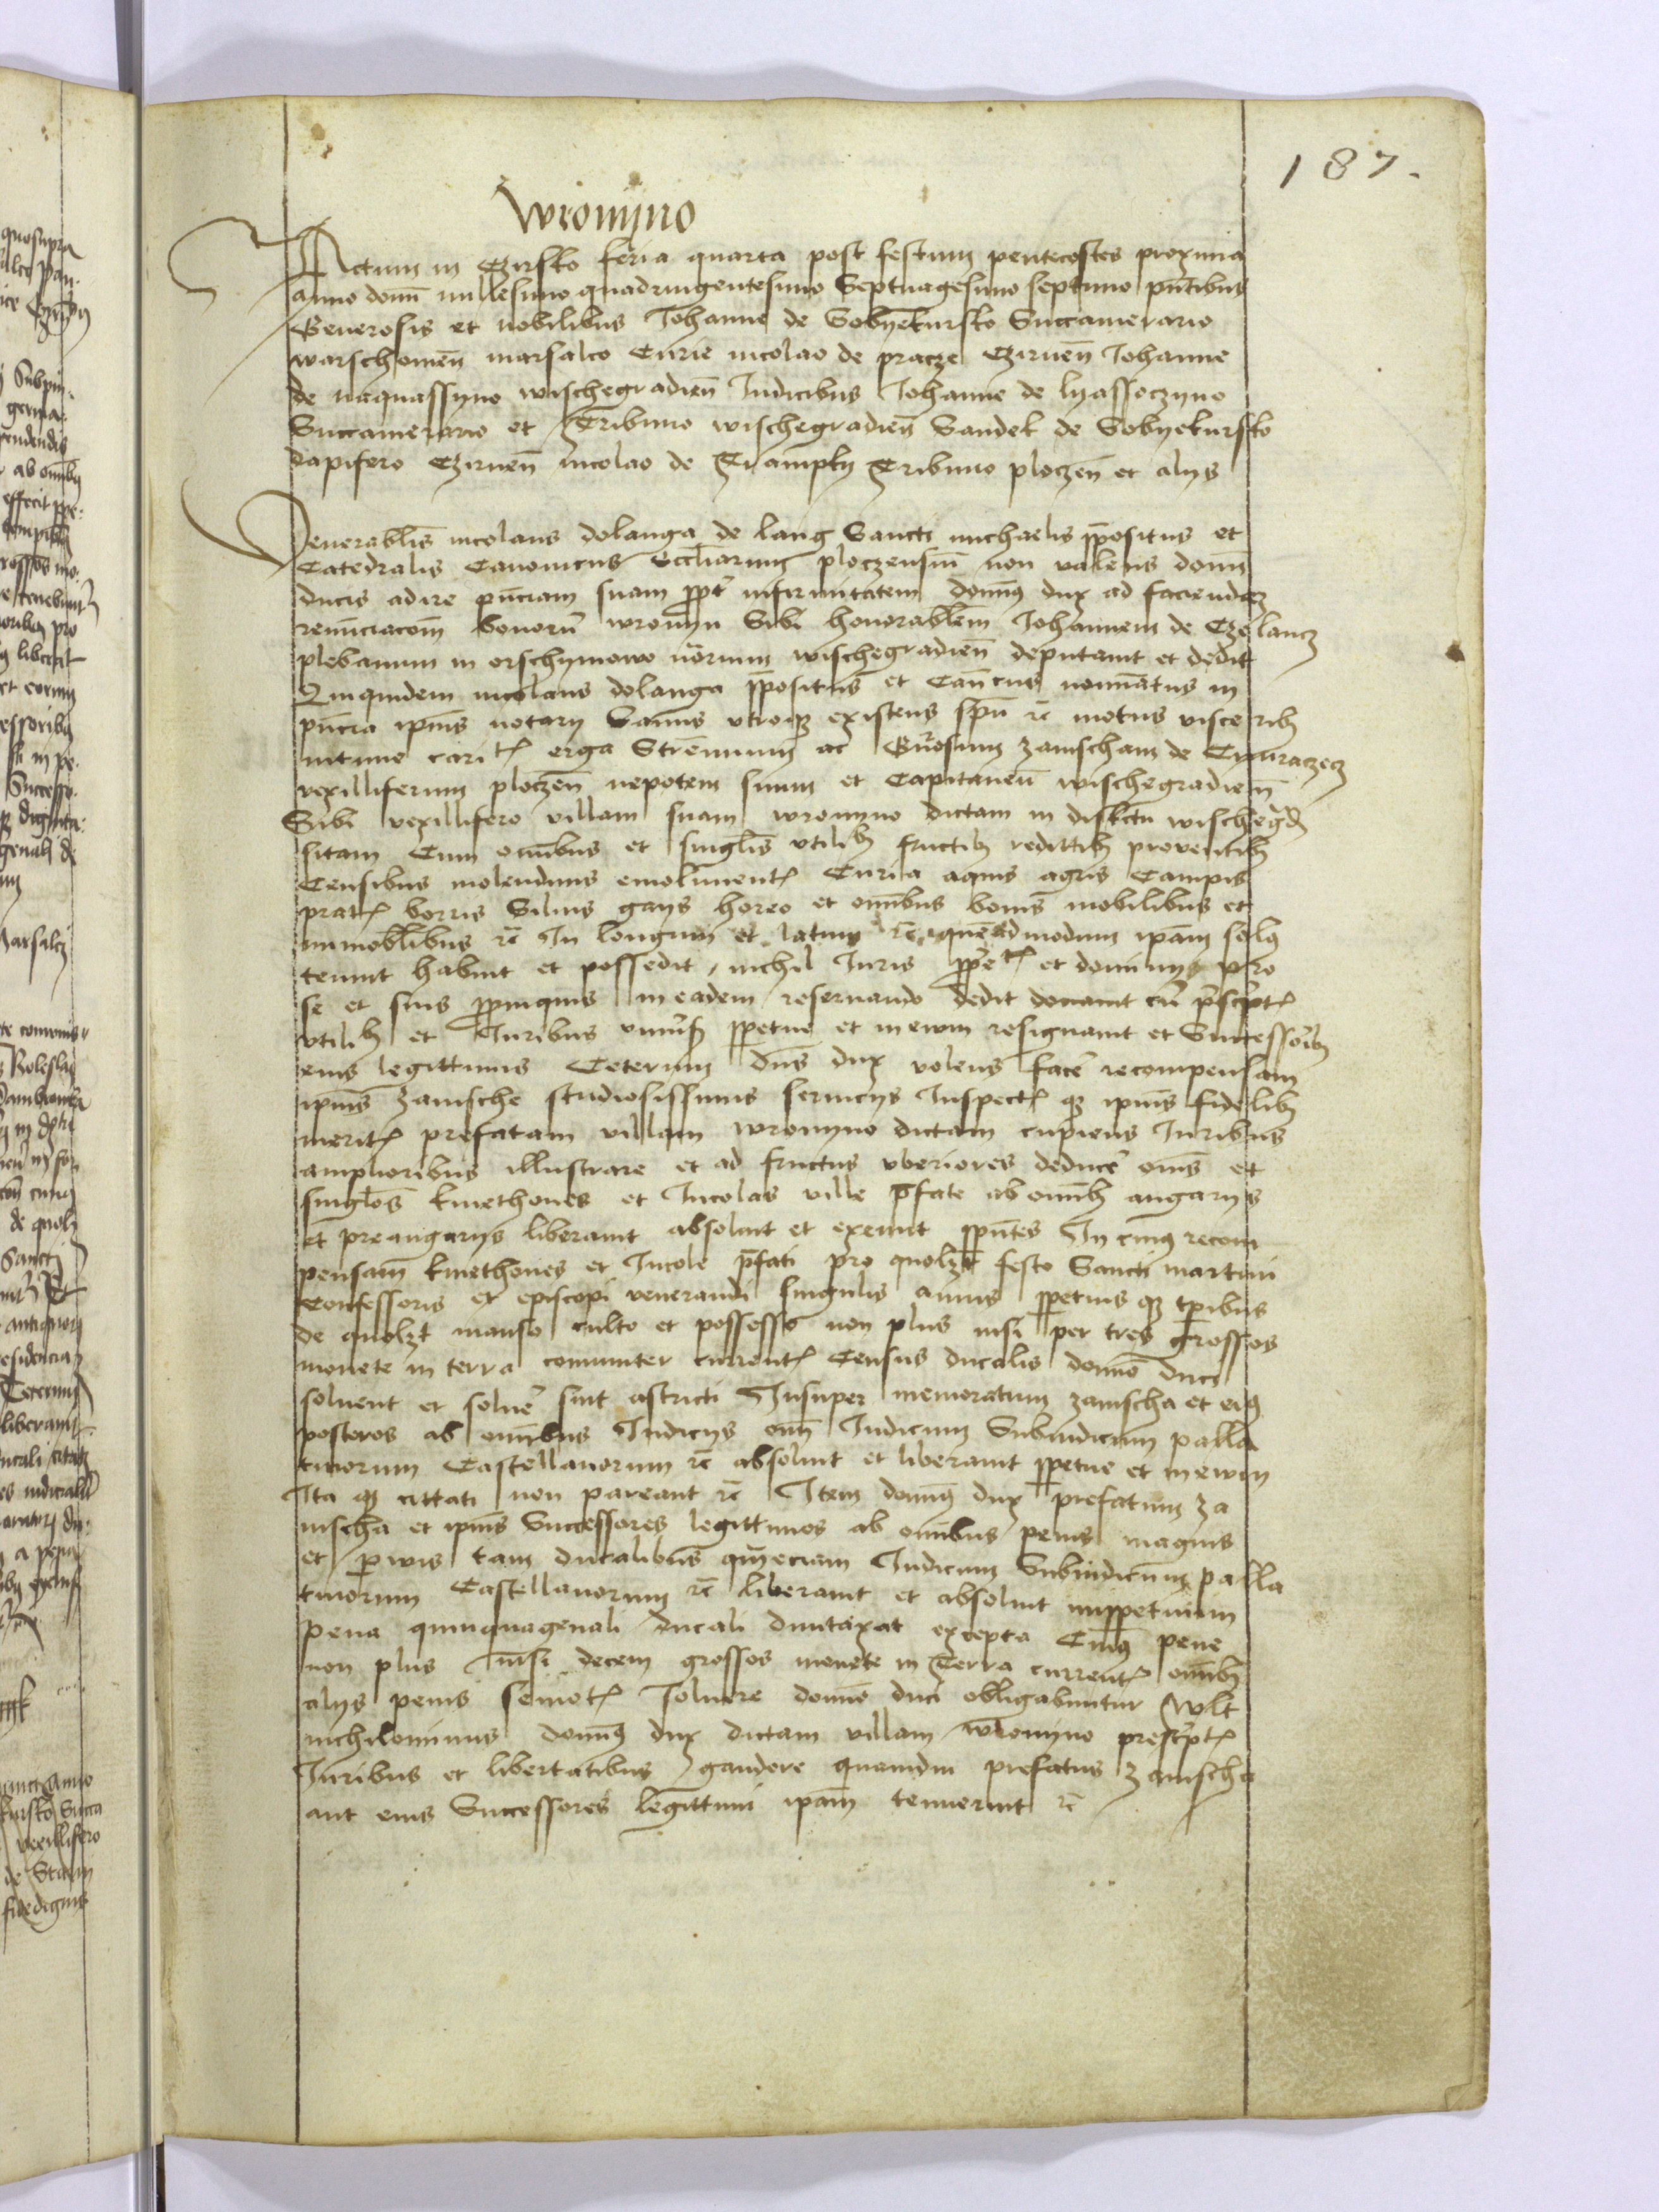 187.
Wromyno
Actum in Czirsko feria quarta post festum pentecostes proxima
anno domī millesimo quadringentesimo Septuagesimo septimo pn̄tibus
Generosis et nobilibus Johanne de Sobyekursko Succamerario
warschouieñ marsalco Curie nicolao de pracze Czirneñ Johanne
de naquassyno wischegradieñ Judicibus Johanne de lyassoczyno
Succamerario et Tribuno wischegradieñ Sandek de Sobyekursko
dapifero Czirneñ nicolao de Trampky Tribuno ploczeñ et alys
Venerabl̄is nicolaus dolanga de lang Sancti michaelis p̄positus et
Catedralis Canonicus Eccl̄iarum ploczensiū non valens domī
ducis adire pn̄ciam suam ppt̄ infirmitatem domin9 dux ad faciendaz
renūciacom̄ bonorū wromyn Sibi honorabl̄em Johannem de Czelancz
plebanum in orschymowo n̄rium wischegradieñ deputauit et dedit
Quiquidem nicolaus dolanga p̄positus et Can̄cus nominatus in
pn̄cia ip̄ius notary Sanus vtroqz existens spū rc̄ motus visceribz
intime carit̄ erga Strennuum ac Gn̄osum zamscham de
vexilliferum ploczeñ nepotem suum et Capitaneū wischegradieñ
Sibi vexillifero villam suam wromyno dictam in districtu wischegd̄
sitam Cum om̄ibus et singl̄is vtilibz fructibz redittibz prouentibz
Censibus molendinis emolimentȝ Curia aquis agris Campis
pratȝ borris Siluis gays horeo et om̄ibus bonis mobilibus et
immobilibus rc̄ In longum et latum rc̄ quēadmodum ipām sol9
tenuit habuit et possedit nichil Juris ppetȝ et dominys pro
se et suis ppinquis in eadem reseruando dedit donauit cū p̄scriptȝ
vtilibz et Juribus vniu̅s ppetue et in ewm resignauit et Successoribz
eius legittimis Ceterum dn̄s dux volens facē recompensam
ipius zamsche studiosissimis seruicys Inspectȝ qz ipius fidelibz
meritȝ prefatam villam wromyno dictam cupiens Juribus
amplioribus illustrare et ad fructus vberiores deducē om̄s et
singl̄os kmethones et Incolas ville p̄fate ab om̄ibz angarys
et preangarys liberauit absoluit et exemit ppn̄tes In cui9 recom
pensam kmethones et Incole p̄fati pro quolzt festo Sancti martini
Confessoris et episcopi venerandi singulis annis ppetuis qz tp̄ribus
de quolzt manso culto et possesso non plus nisi per tres grossos
monete in terra comuniter currentȝ Census ducalis domīo duci
soluent et soluē sint astricti Insuper memoratum zamscha et ei9
posteros ab om̄ibus Judicys om̄ Judicum Subiudicum palla
tinorum Castellanorum rc̄ absoluit et liberauit ppetue et in ewm
Ita qz cittati non pareant rc̄ Item domin9 dux prefatum za
mscha et ipius Successores legittimos ab om̄ibus penis magnis
et paruis tam ducalibus qm̄ eciam Judicum Subiudicum palla
tinorum Castellanorum rc̄ liberauit et absoluit imppetuum
pena quinquagenali ducali duntaxat excepta Cui9 pene
non plus nisi decem grossos monete in Terra currentȝ om̄ibz
alys penis semotȝ soluere domīo duci obligabuntur Wlt
nichilominus domin9 dux dictam villam wromyno prescriptȝ
Juribus et libertatibus gaudere quamdiu prefatus zamscha
aut eius Successores legittimi ipam tenuerint rc̄